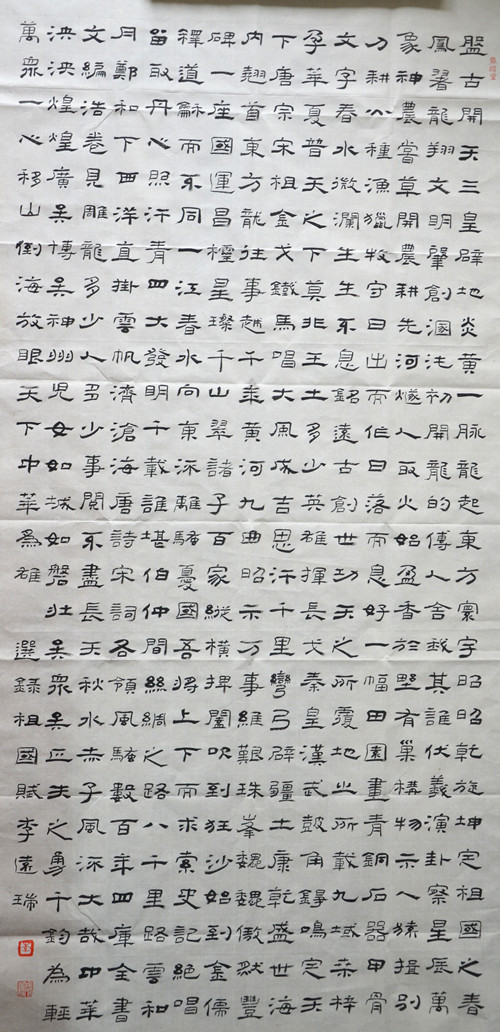 盤古開天三皇辟地炎黃一脈龍起東方寰宇昭昭乾旋坤定祖國之春
鳳翥龍翔文明肇創溷沌初開龍的傳人舍我其誰伏義演卦察星辰萬
象神農嘗草開農耕先河燧人取火始盈香於野有巢構物示人猿揖別
刀耕火種漁獵牧守日出而作日落而息好一幅田園畫青銅石器甲骨
文字春水微瀾生生不息銘遠古創世功天之所覆地之所載九域桑梓
孕華夏普天之下莫非王土多少英雄揮長戈秦皇漢武鼓角錚鳴定天
下唐宗宋祖金戈鐵馬唱大風成吉思汗千里彎弓辟疆土康乾盛世海
內翹首東方龍往事越千年黃河九曲昭示萬事維艱珠峯巍巍傲然豐
碑一座國運昌星璨千山翠諸子百家縱橫捭闔吹到狂沙始到金儒
釋道龢而不同一江春水向東流離騷憂國吾將上下而求索史記絕唱
留取丹心照汗青四大發明千載誰堪伯仲間絲綢之路八千里路雲和
月鄭和下西洋直掛雲帆濟滄海唐詩宋詞各領風騷數百年四庫全書
文編浩卷見雕龍多少人多少事閱不盡長天秋水赤子風流大哉中華
泱泱煌煌廣矣博矣神州兒女如城如磐壯矣衆矣匹夫之勇千鈞為輕
萬衆一心移山倒海放眼天下中華為雄 選錄祖國賦李遠瑞